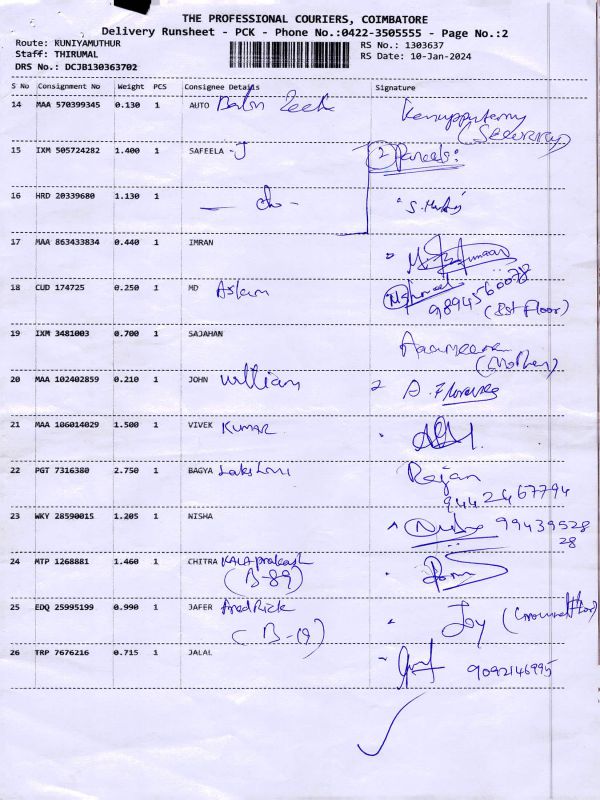 THE PROFESSIONAL COURIERS, COIMBATORE
Delivery Runsheet - PCK - Phone No.:0422-3505555 - Page No.:2
Route: KUNIYAMUTHUR RS No.: 1303637
Staff: THIRUMAL RS Date: 10-Jan-2024
DRS No.: DCJB130363702
S No Consignment No Weight PCS Consignee Details Signature
14 MAA 570399345 0.130 1 AUTO
(Security)
15 IXM 505724282 1.400 1 SAFEELA -J 2 Parcels:
16 HRD 20339680 1.130 1 - do -
17 MAA 863433834 0.440 1 IMRAN
18 CUD 174725 0.250 1 MD Aslam
9894560078 (1st Floor)
19 IXM 3481003 0.700 1 SAJAHAN
(Mother)
20 MAA 102402859 0.210 1 JOHN William
21 MAA 106014029 1.500 1 VIVEK Kumar
22 PGT 7316380 2.750 1 BAGYA Lakshmi Rajan
9442467794
23 WKY 28590015 1.205 1 NISHA Nisha 99439528
28
24 MTP 1268881 1.460 1 CHITRA KALA prakash
(B-89)
25 EDQ 25995199 0.990 1 JAFER fredRick Joy (Ground floor)
(B-19)
26 TRP 7676216 0.715 1 JALAL 9092146995